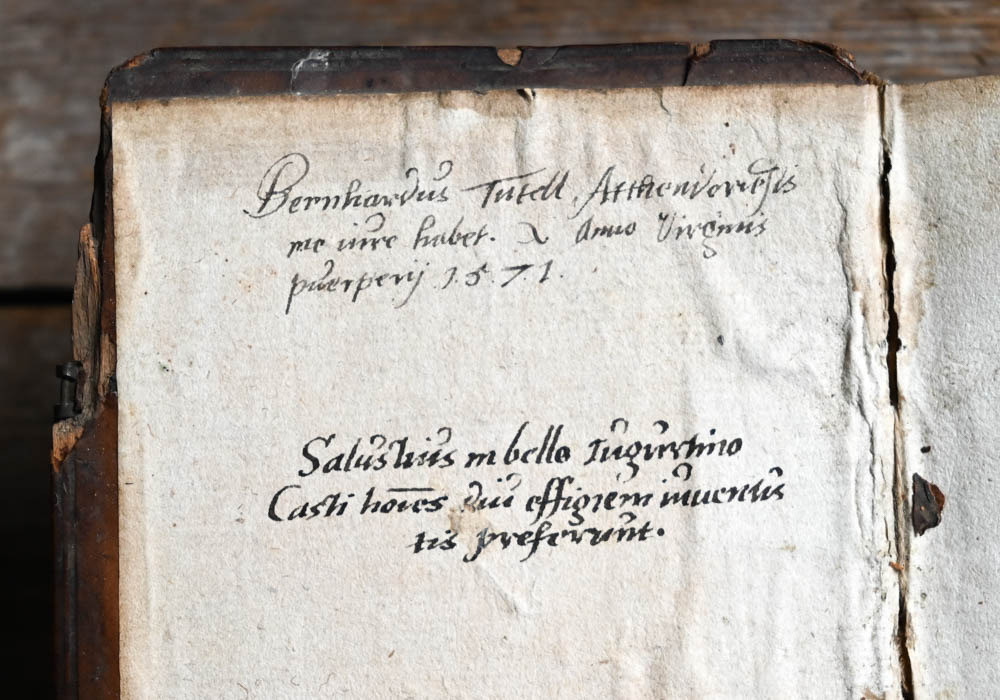 Bernhardus Tutell Attendoriēsis
me iure habet. & Anno Virginis
puerperij 1.5.71.
Salustius in bello Iugurtino
Casti hoīes diu effigiem iuventu
tis preferunt.